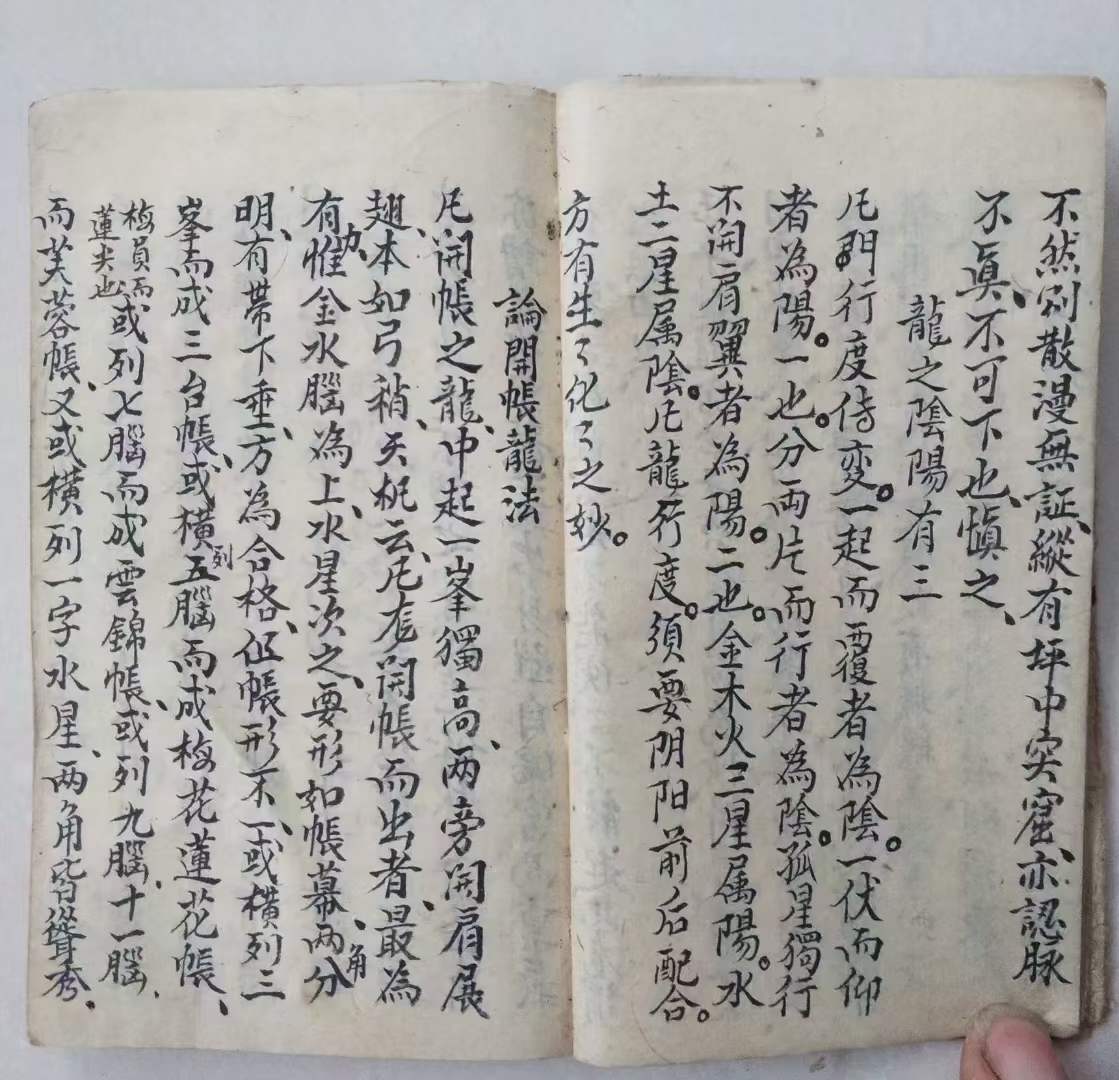 不然则散漫無証、縱有坪中突窟、亦認脉
不眞、不可下也、慎之、
龍之陰陽有三
凡門行度变。一起而覆者為陰。一伏而仰
者為陽。一也。分两片而行者為陰。孤星獨行
不開肩翼者為陽。二也。金木火三星属陽。水
土二星属陰。凡龍行度。須要阴阳前后配合。
方有生々化々之妙。
論開帳龍法
凡開帳之龍、中起一峯獨高、两旁開肩展
翅、本如弓稍、天机云、凡開帳而出者、最為
有力、惟金水腦為上、水星次之、要形如帳幕、两角分
明、有帶下垂、方為合格、但帳形不一、或横列三
峯而成三台帳、或横列五腦而成梅花蓮花帳、
梅員而
蓮尖也
或列七腦而成雲錦帳、或列九腦、十一腦、
而芙蓉帳、又或横列一字水星、两角皆聳秀、